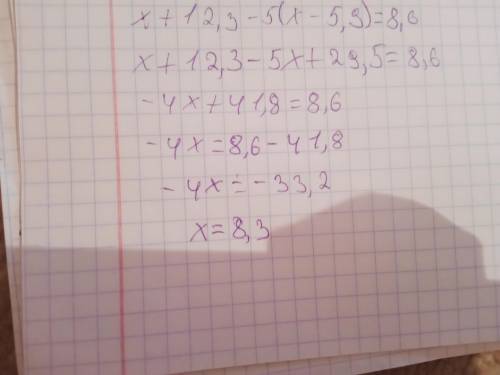 x+12,3-5(x-5,9)=8,6
x+12,3-5x+29,5=8,6
-4x+41,8=8,6
-4x=8,6-41,8
-4x=-33,2
x=8,3